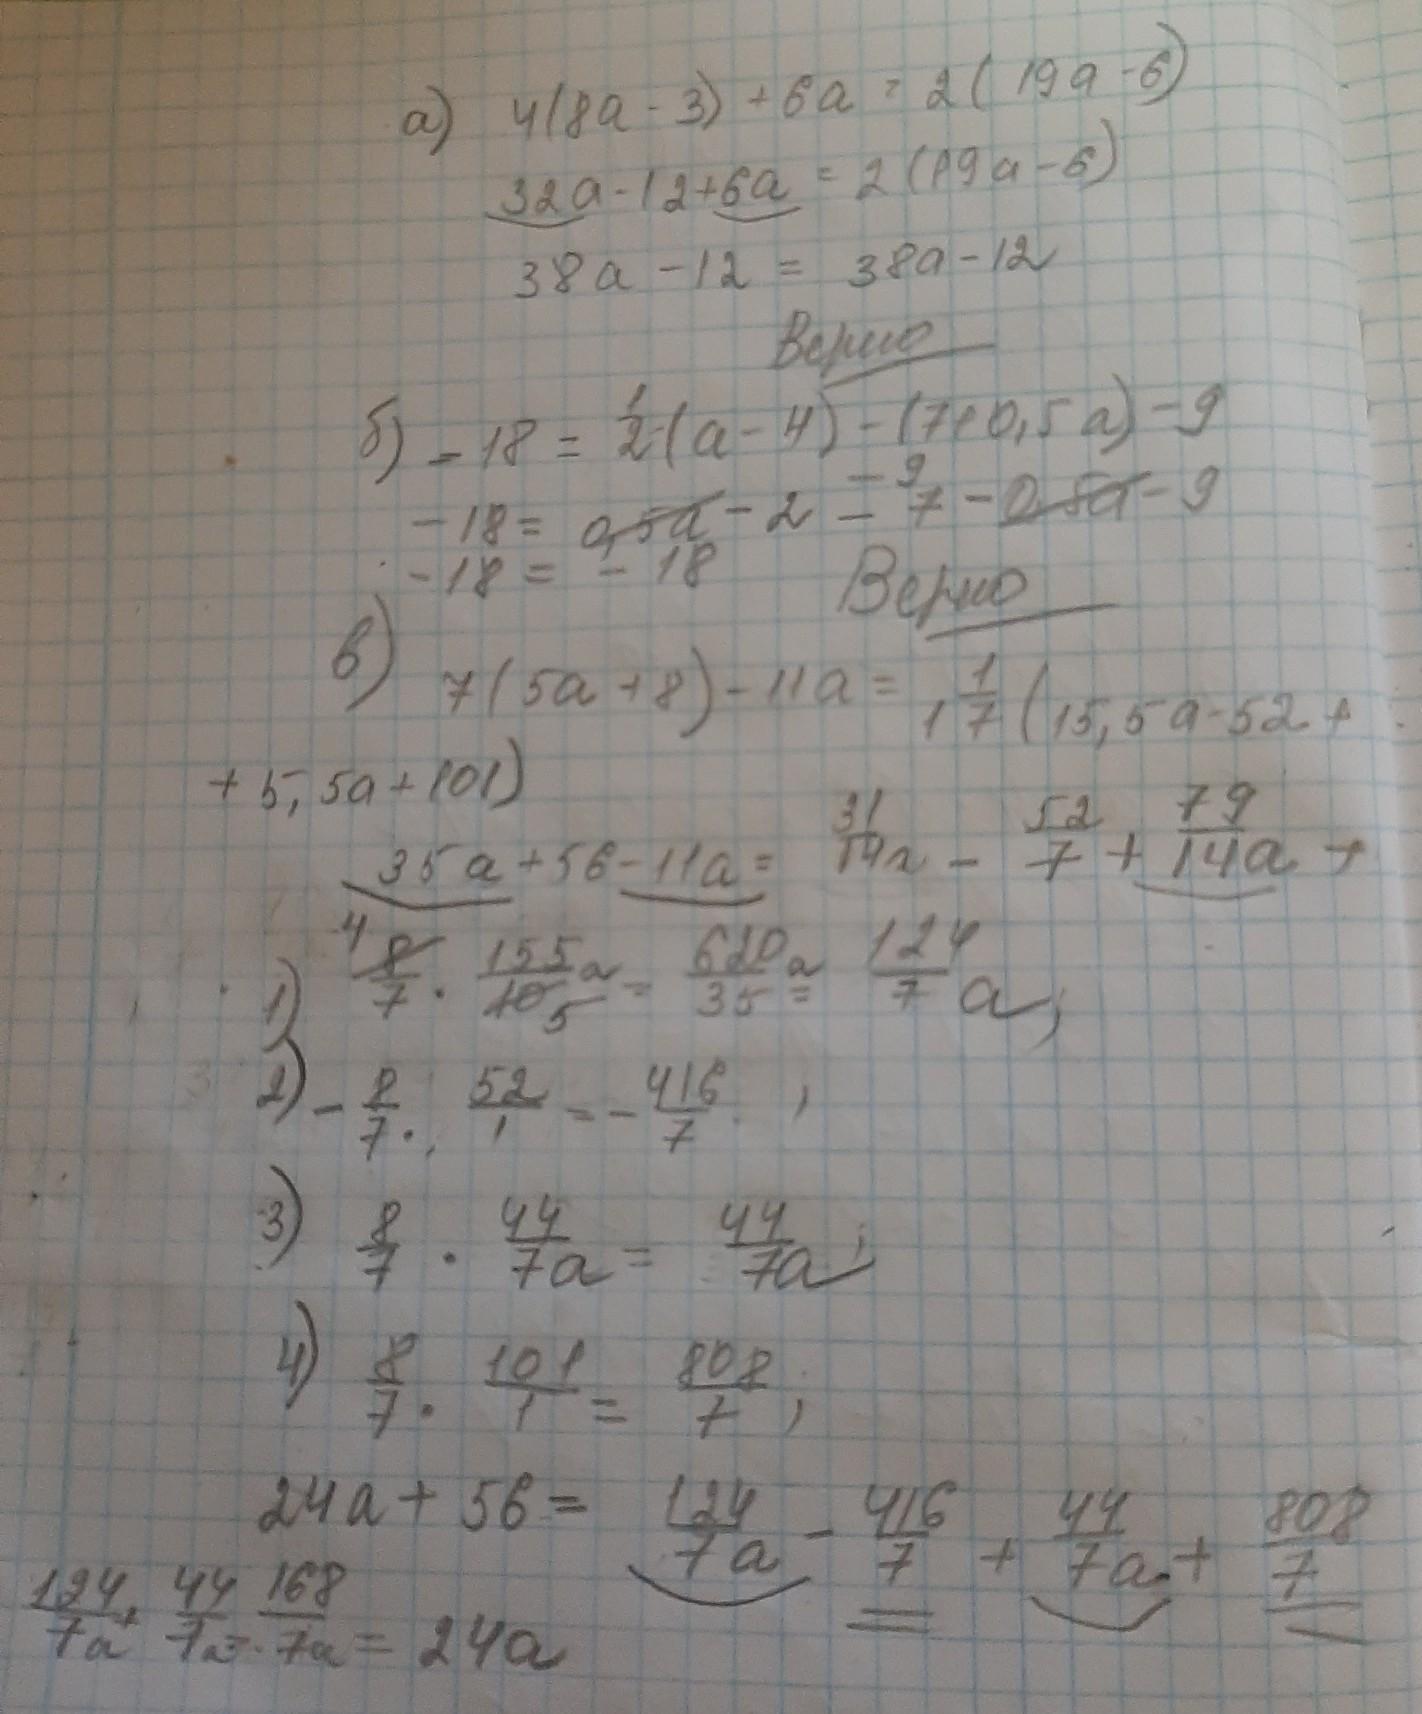 а) 4(8а - 3) + 6а = 2(19а - 6)
32а - 12 + 6а = 2(19а - 6)
38а - 12 = 38а - 12
Верно
б) -18 = 1/2 (а - 4) - (7 + 0,5а) - 9
-9
-18 = 0,5а - 2 - 7 - 0,5а - 9
-18 = -18
Верно
в) 7(5а + 8) - 11а = 1 1/7 (15,5а - 52 +
+ 5,5а + 101)
35а + 56 - 11а = 31/14а - 52/7 + 79/14а +
1) 4 8/7 · 155/10 5 а = 620/35 а = 124/7 а;
2) - 8/7 · 52/1 = - 416/7 ;
3) 8/7 · 44/7а = 44/7а;
4) 8/7 · 101/1 = 808/7;
24а + 56 = 124/7а - 416/7 + 44/7а + 808/7
124/7а + 44/7а = 168/7а = 24а